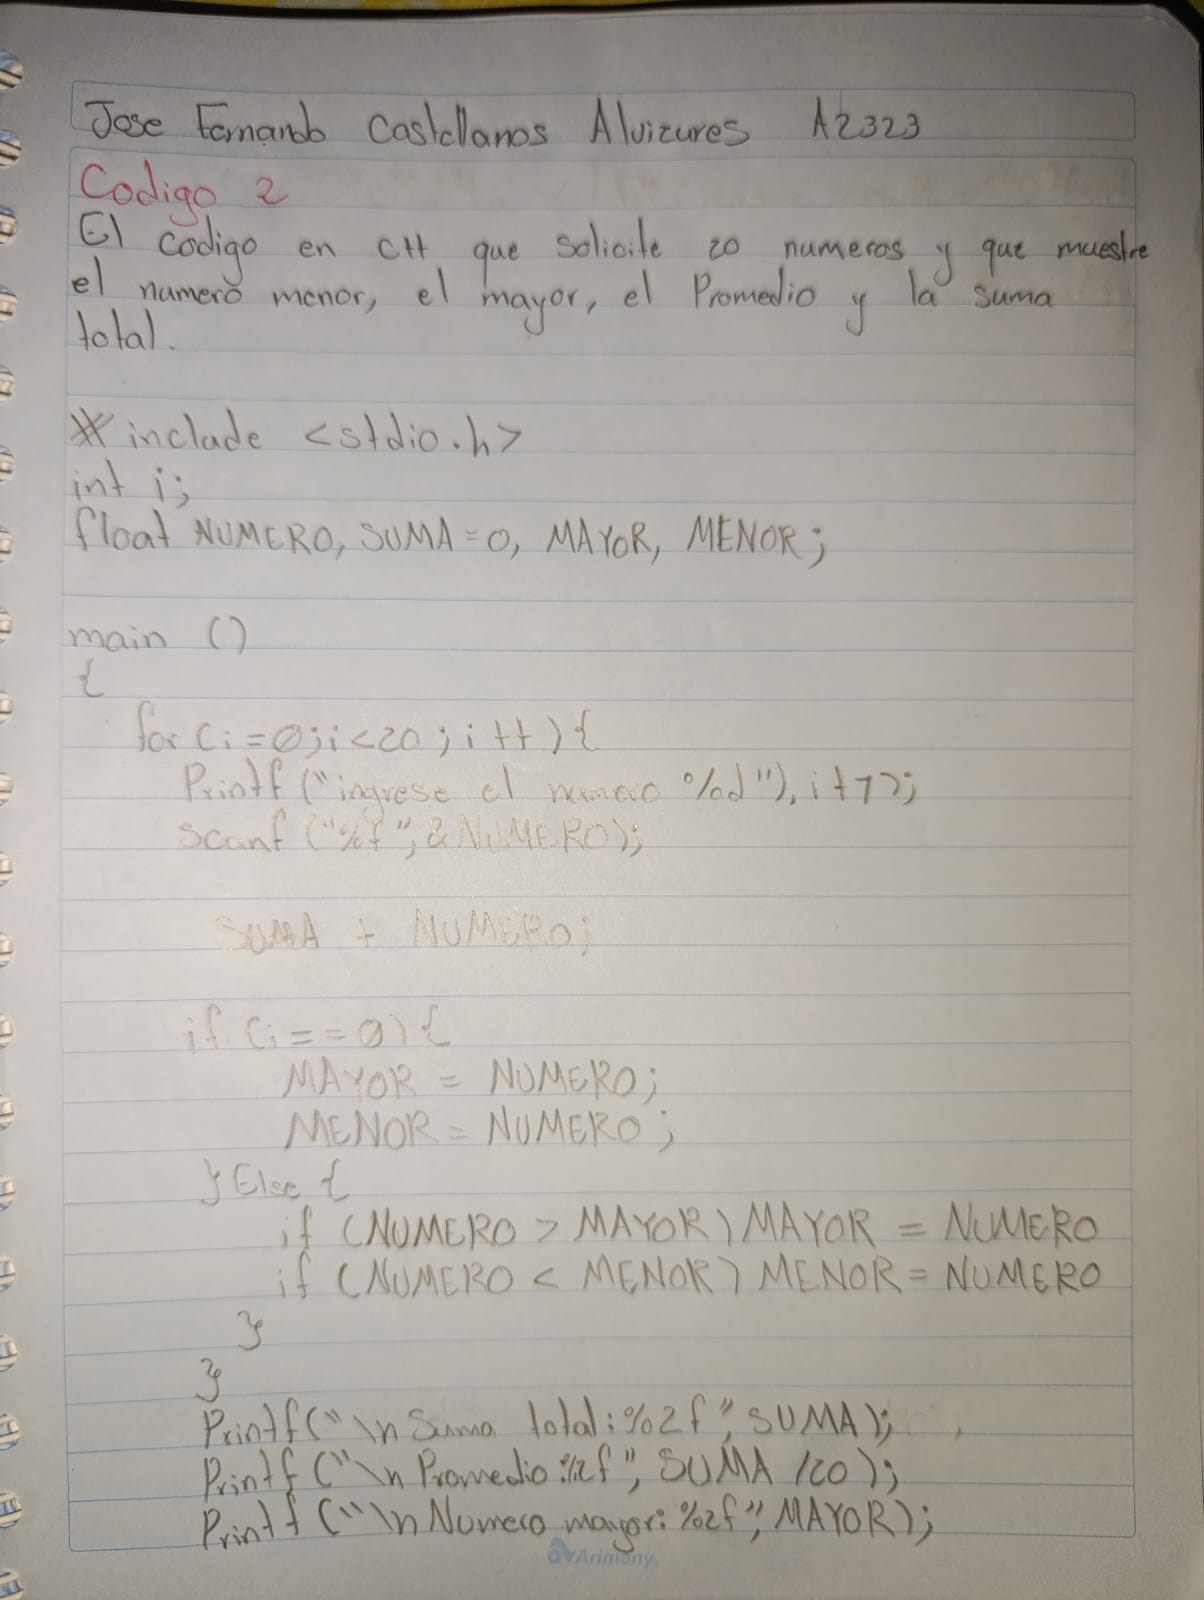 Jose Fernando Castellanos Alvizures A2323
Codigo 2
El codigo en C++ que solicite 20 numeros y que muestre
el numero menor, el mayor, el Promedio y la suma
total.
#include <stdio.h>
int i;
float NUMERO, SUMA=0, MAYOR, MENOR;
main ()
{
for (i=0;i<20;i++){
Printf ("ingrese el numero %d"), i+1);
scanf ("%f", &NUMERO);
SUMA + NUMERO;
if (i==0) {
MAYOR = NUMERO;
MENOR = NUMERO;
} Else {
if (NUMERO > MAYOR) MAYOR = NUMERO
if (NUMERO < MENOR) MENOR = NUMERO
}
}
Printf("\n Suma total:%2f", SUMA);
Printf ("\n Promedio:%2f", SUMA /20);
Printf ("\n Numero mayor: %2f", MAYOR);
Arimany.